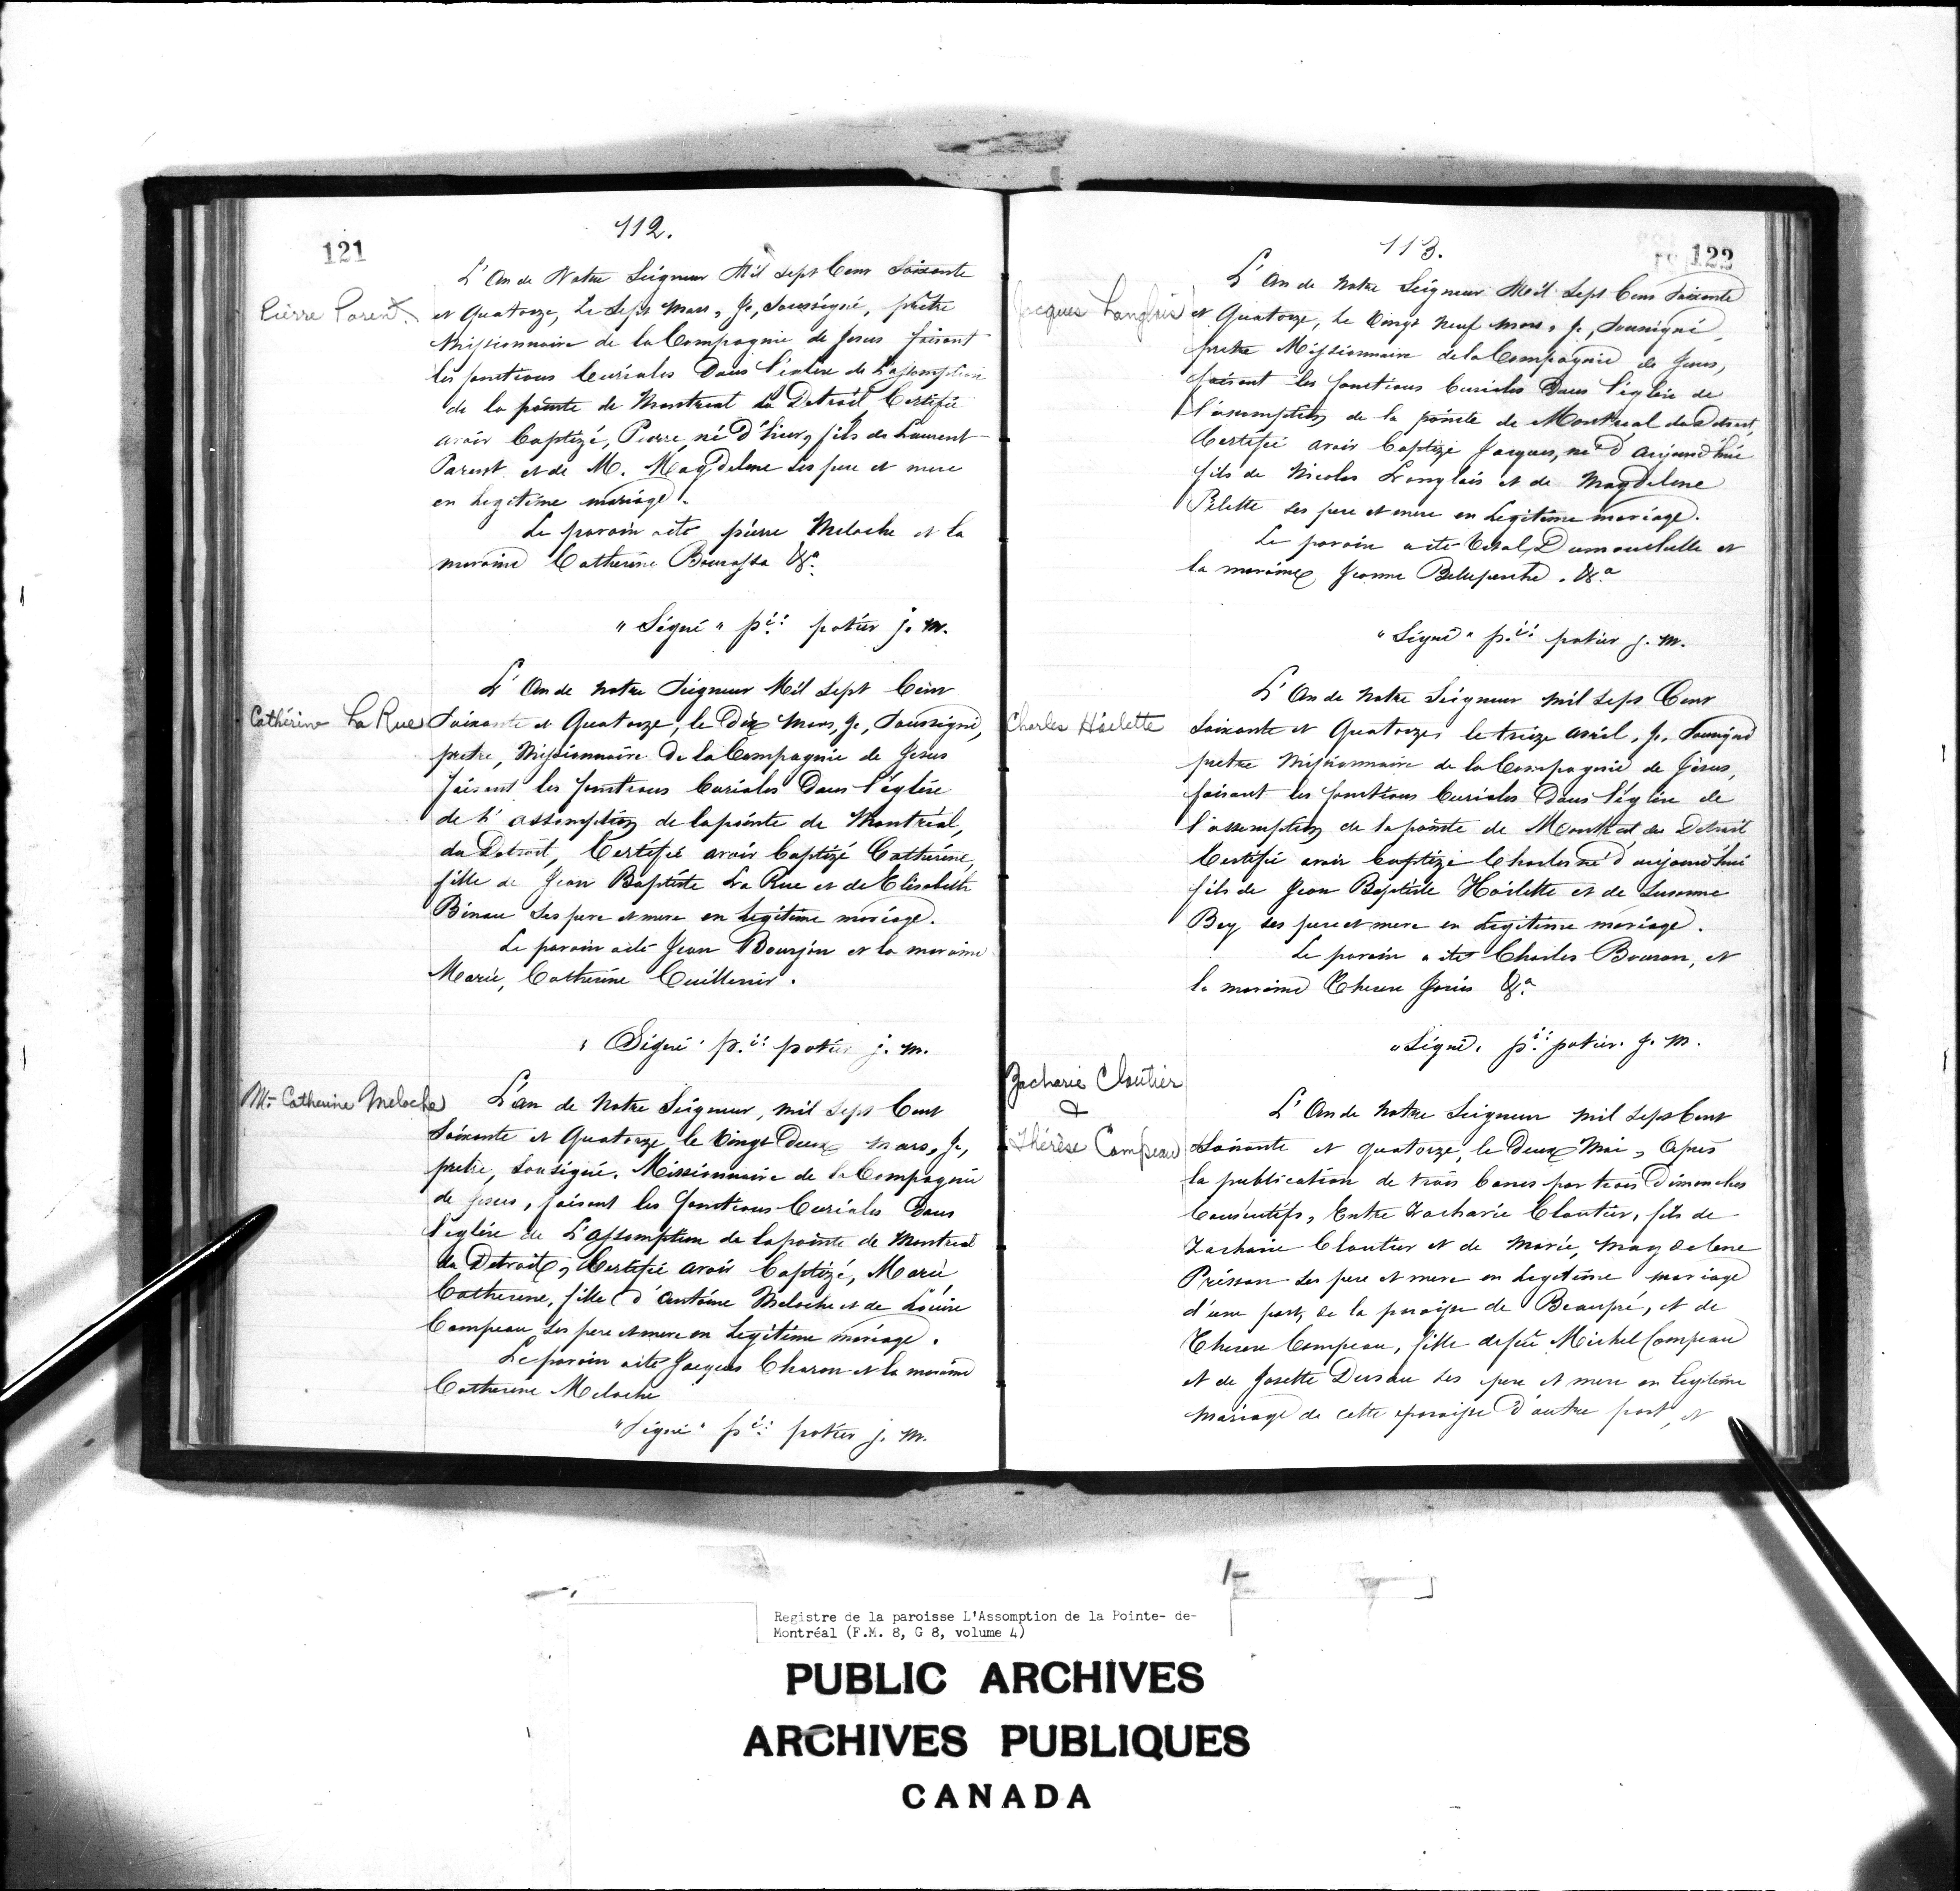 112.
121
L'An de Notre Seigneur Mil sept Cent Soixante
Pierre Parent. et Quatorze, Le Sept Mars, Je, Soussigné, prêtre
Missionnaire de la Compagnie de Jesus faisant
les fonctions Curiales Dans l'eglise de L'assomption
de la pointe de Montreal du Detroit Certifie
avoir Baptizé, Pierre, né D'hier, fils de Laurent
Parent et de M. Magdelene ses pere et mere
en Legitime mariage.
Le parain a été pierre Meloche et la
maraine Catherine Bourassa &a.
"Signé" pre: potier j. m.
L'An de Notre Seigneur Mil Sept Cent
Cathérine La Rue Soixante et Quatorze, le Dix Mars, Je, Soussigné,
pretre, Missionnaire De la Compagnie de Jesus
faisant les fonctions Curiales Dans l'église
de l'assomption de la pointe de Montréal,
du Detroit, Certifie avoir baptizé Catherine,
fille de Jean Baptiste La Rue et de Elisabeth
Binau ses pere et mere en Legitime mariage.
Le parain a été Jean Bourjon et la maraine
Marie, Catherine Cuillerier.
"Signé" p.re: potier j. m.
M.- Catherine Meloche L'an de Notre Seigneur, mil Sept Cent
Soixante et Quatorze, le Vingt Deux Mars, Je,
pretre, Sousigné, Missionnaire de la Compagnie
de Jesus, faisant les fonctions Curiales Dans
l'eglise de L'assomption de la pointe de Montreal
du Detroit, Certifie avoir baptizé, Marie
Catherine, fille d'Antoine Meloche et de Louise
Campeau ses pere et mere en Legitime mariage.
Le parain a été Jacques Charon et la maraine
Catherine Meloche
"Signé" pre: potier j. m.
113.
122
L'An de Notre Seigneur Mil Sept Cent Soixante
Jacques Langlois et Quatorze, Le Vingt Neuf Mars, Je, Soussigné
pretre Missionnaire de la Compagnie de Jesus,
faisant les fonctions Curiales Dans l'église de
l'assomption de la pointe de Montreal du Detroit,
Certifie avoir baptizé Jacques, né d'aujourd'hui
fils de Nicolas Langlais et de Magdelene
Pilette ses pere et mere en Legitime mariage.
Le parain a été Vital Dumouchelle et
la maraine Jeanne Belleperche. &a
"Signé" p.re: potier j. m.
L'An de Notre Seigneur mil Sept Cent
Charles Häelette Soixante et Quatorze, le treize avril, Je, Sousigné
pretre Missionnaire de la Compagnie de Jésus,
faisant les fonctions Curiales Dans l'église de
l'assomption de la pointe de Montreal du Detroit
Certifie avoir baptizé Charles né d'aujourd'hui
fils de Jean Baptiste Häelette et de Susanne
Bey ses pere et mere en Legitime mariage.
Le parain a été Charles Bouron, et
la maraine Therese &a
"Signé" pre: potier. j. m.
Zacharie Cloutier
&
L'An de Notre Seigneur mil Sept Cent
Thérèse Campeau Soixante et quatorze, le Deux Mai, Apres
la publication de trois bancs par trois Dimanches
Consécutifs, Entre Zacharie Cloutier, fils de
Zacharie Cloutier et de Marie, Magdelene
ses pere et mere en Legitime mariage
d'une part, de la paroisse de Beaupré, et de
Therese Campeau, fille de feu Michel Campeau
et de Josette ses pere et mere en Legitime
mariage de cette paroisse d'autre part, et
Registre de la paroisse L'Assomption de la Pointe- de-
Montréal (F.M. 8, G 8, volume 4)
PUBLIC ARCHIVES
ARCHIVES PUBLIQUES
CANADA